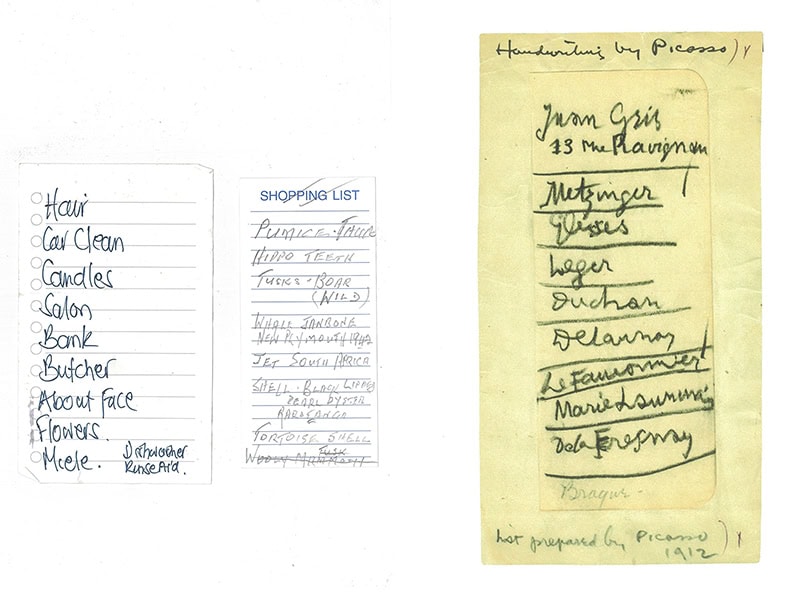 Hair
Car Clean
Candles
Salon
Bank
Butcher
About Face
Flowers.
Miele. Dishwasher
Rinse Aid.
SHOPPING LIST
PUMICE - TAUPO
HIPPO TEETH
TUSKS - BOAR
(WILD)
WHALE JAWBONE
NEW PLYMOUTH
JET SOUTH AFRICA
SHELL - BLACK LIPPED
PEARL OYSTER
RAROTONGA
TORTOISE SHELL
WOOLY MAMMOTH TUSK
Handwriting by Picasso) x
Juan Gris
13 rue Ravignan
Metzinger
Gleises
Leger
Duchan
Delaunay
Le Fauconnier
Marie Laurencin
De la Fresnay
Braque -
List prepared by Picasso) x
1912